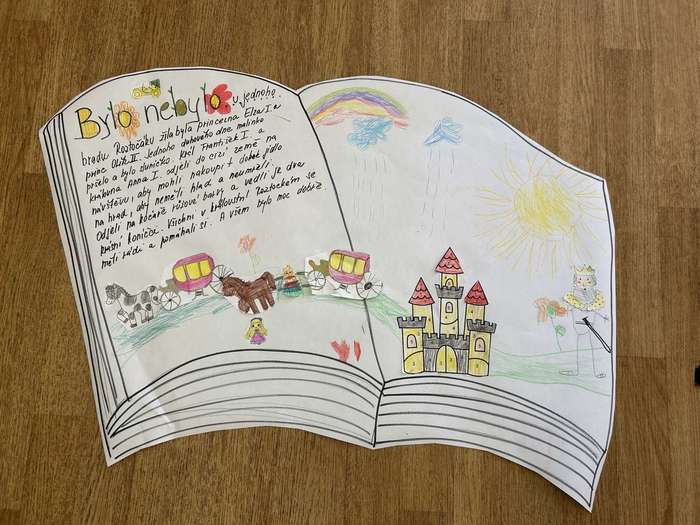 Bylo nebylo, u jednoho
hradu Roztočáku žila byla princezna Elza I. a
princ Oto II. Jednoho duhového dne malinko
pršelo a bylo sluníčko. Král František I. a
královna Anna I. odjeli do cizí země na
návštěvu, aby mohli nakoupit dobré jídlo
na hrad, aby neměli hlad a neumřeli.
Odjeli na kočáře růžové barvy a vedli je dva
krásní koníčci. Všichni v království Roztockém se
měli rádi a pomáhali si. A všem bylo moc dobře.